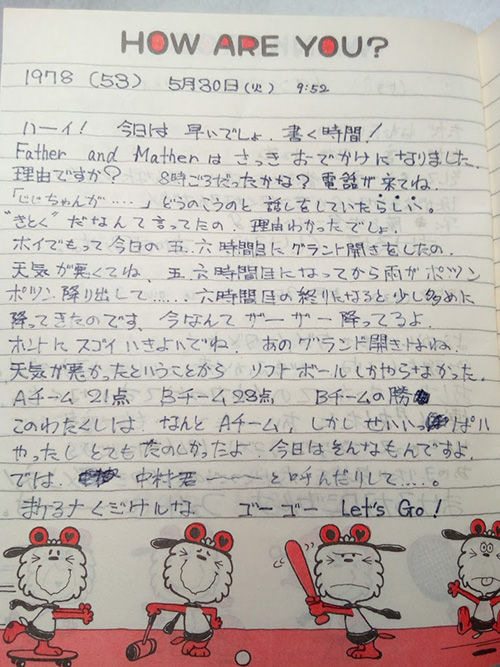 HOW ARE YOU?
1978 (53) 5月30日(火) 9:52
ハーイ! 今日は 早いでしょ. 書く時間!
Father and Mather は さっき おでかけになりました.
理由ですか? 8時ごろだったかな? 電話が来てね.
「じじちゃんが‥‥」どうのこうのと 話しをしていたらしい。
"きとく" だなんて言ってたの. 理由わかったでしょ.
ホイでもって今日の 五、六時間目にグランド開きをしたの.
天気が悪くてね、五、六時間目になってから雨がポツン
ポツン 降り出して‥‥. 六時間目の終りになると少し多めに
降ってきたのです、今なんて ザーザー 降ってるよ.
ホントに スゴイ いきよいでね. あのグランド開きはね.
天気が悪かったということから ソフトボールしかやらなかった.
Aチーム 21点 Bチーム 23点 Bチームの勝
このわたくしは なんと Aチーム. しかし せいいっぱい
やったし とても たのしかったよ. 今日はそんなもんですよ.
では、 中村君 〜〜〜 と呼んだりして‥‥.
まけるナ くじけるな ゴーゴー Let's Go!